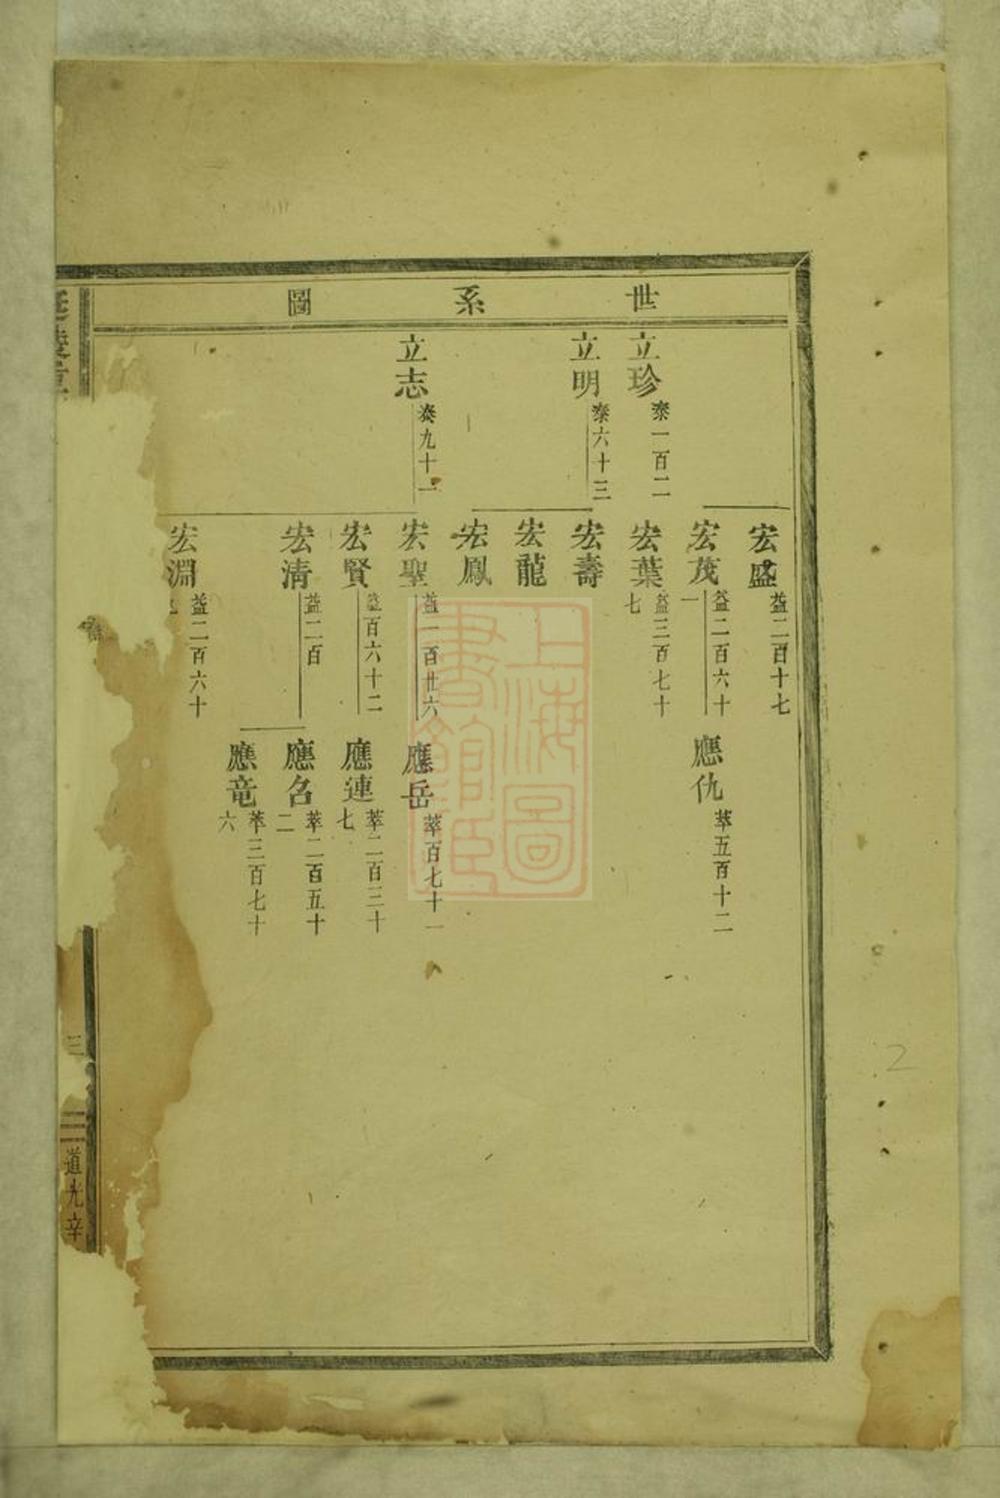 世系圖
立珍
泰一百二
立明
泰六十三
立志
泰九十一
宏盛
益二百十七
宏茂
益二百六十
一
宏葉
益三百七十
七
宏壽
宏龍
宏鳳
宏聖
益一百廿六
宏賢
益百六十二
宏清
益二百
宏淵
益二百六十
應仇
萃五百十二
應岳
萃百七十一
應連
萃二百三十
七
應名
萃二百五十
二
應竜
萃三百七十
六
三
道光辛
上海圖
書館藏
2